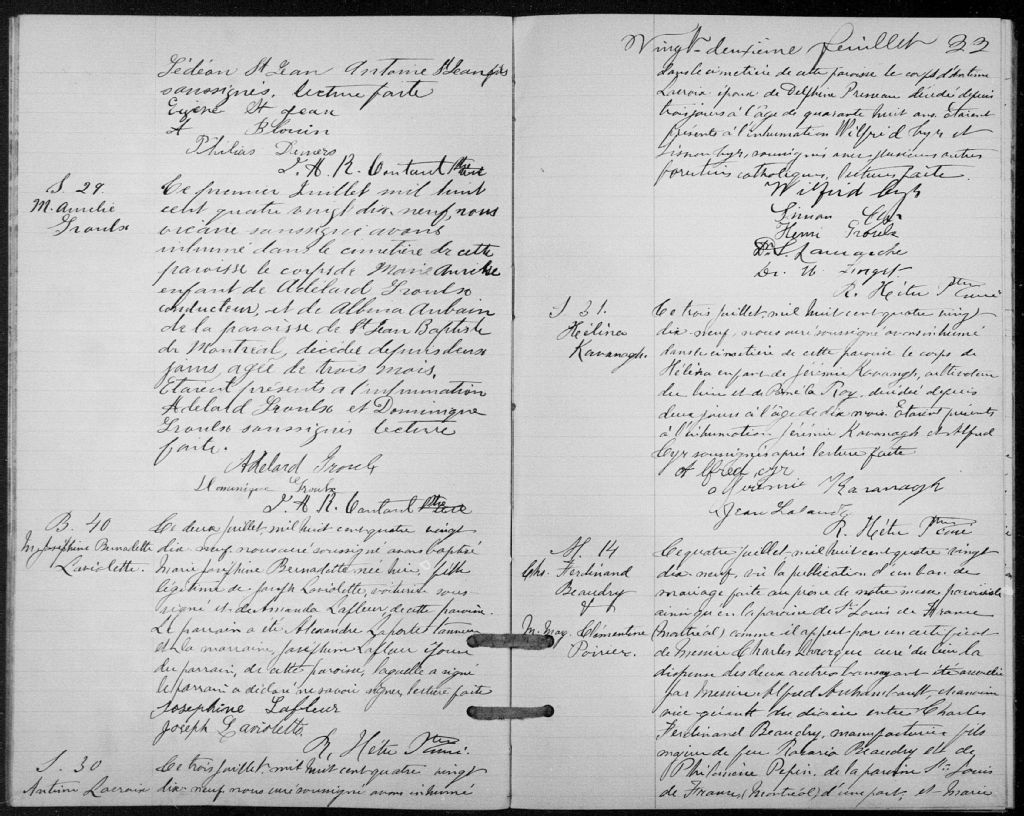 Gédéon St Jean Antoine St Jean
soussignés, lecture faite
Eugène St Jean
A Blouin
Philias Demers
J. A. R. Contant Ptre
S. 29.
M. Aurélie
Groulx
Ce premier Juillet mil huit
cent quatre vingt dix neuf, nous
vicaire soussigné avons
inhumé dans le cimetière de cette
paroisse le corps de Marie Aurélie
enfant de Adelard Groulx
conducteur, et de Albina Aubain
de la paroisse de St Jean Baptiste
de Montréal, décédée depuis deux
jours, agée de trois mois.
Etaient présents a l'inhumation
Adelard Groulx et Dominique
Groulx soussignés lecture
faite.
Adelard Groulx
Dominique Groulx
J. A. R. Contant Ptre
B. 40
M. Joséphine Bernadette
Laviolette.
Ce deux juillet, mil huit cent quatre vingt
dix-neuf nous curé soussigné avons baptisé
Marie Joséphine Bernadette née hier, fille
légitime de Joseph Laviolette, voiturier sous-
signé et de Amanda Lafleur, de cette paroisse.
Le parrain a été Alexandre Laporte tanneur
et la marraine, Joséphine Lafleur épouse
du parrain, de cette paroisse, laquelle a signé
le parrain a déclaré ne savoir signer, lecture faite
Josephine Lafleur
Joseph Laviolette
R. Hétu Ptre curé.
S. 30
Antoine Lacroix
Ce trois juillet, mil huit cent quatre vingt
dix-neuf nous curé soussigné avons inhumé
Vingt-deuxième feuillet 22
dans le cimetière de cette paroisse le corps d'Antoine
Lacroix époux de Delphine Pruneau décédé depuis
trois jours à l'âge de quarante huit ans. Etaient
présents à l'inhumation Wilfrid Cyr et
Simon Cyr, soussignés avec plusieurs autres
forestiers catholiques, lecture faite.
Wilfrid Cyr
Simon Cyr
Henri Groulx
Lamarche
R. Hétu Ptre curé
S 31.
Héléna
Kavanagh.
Ce trois juillet, mil huit cent quatre vingt
dix-neuf, nous curé soussigné avons inhumé
dans le cimetière de cette paroisse le corps de
Héléna enfant de Jérémie Kavanagh, cultivateur
du lieu et de Roy, décédée depuis
deux jours à l'âge de dix mois. Etaient présents
à l'inhumation Jérémie Kavanagh et Alfred
Cyr soussignés après lecture faite
Alfred Cyr
Jérémie Kavanagh
Jean Lalande
R. Hétu Ptre curé
M. 14
Chs. Ferdinand
Beaudry
&
M. Clémentine
Poirier.
Ce quatre juillet, mil huit cent quatre vingt
dix-neuf, vu la publication d'un ban de
mariage faite au prone de notre messe paroissiale
ainsi qu'en la paroisse de St Louis de France
(Montréal) comme il appert par un certificat
de messire Charles Larocque curé du lieu la
dispense des deux autres bans ayant été accordée
par messire Alfred Archambault, chanoine
vice gérant du diocèse entre Charles
Ferdinand Beaudry, manufacturier fils
majeur de feu Beaudry et de
Philomène Pepin, de la paroisse St Louis
de France, (Montréal) d'une part, et Marie